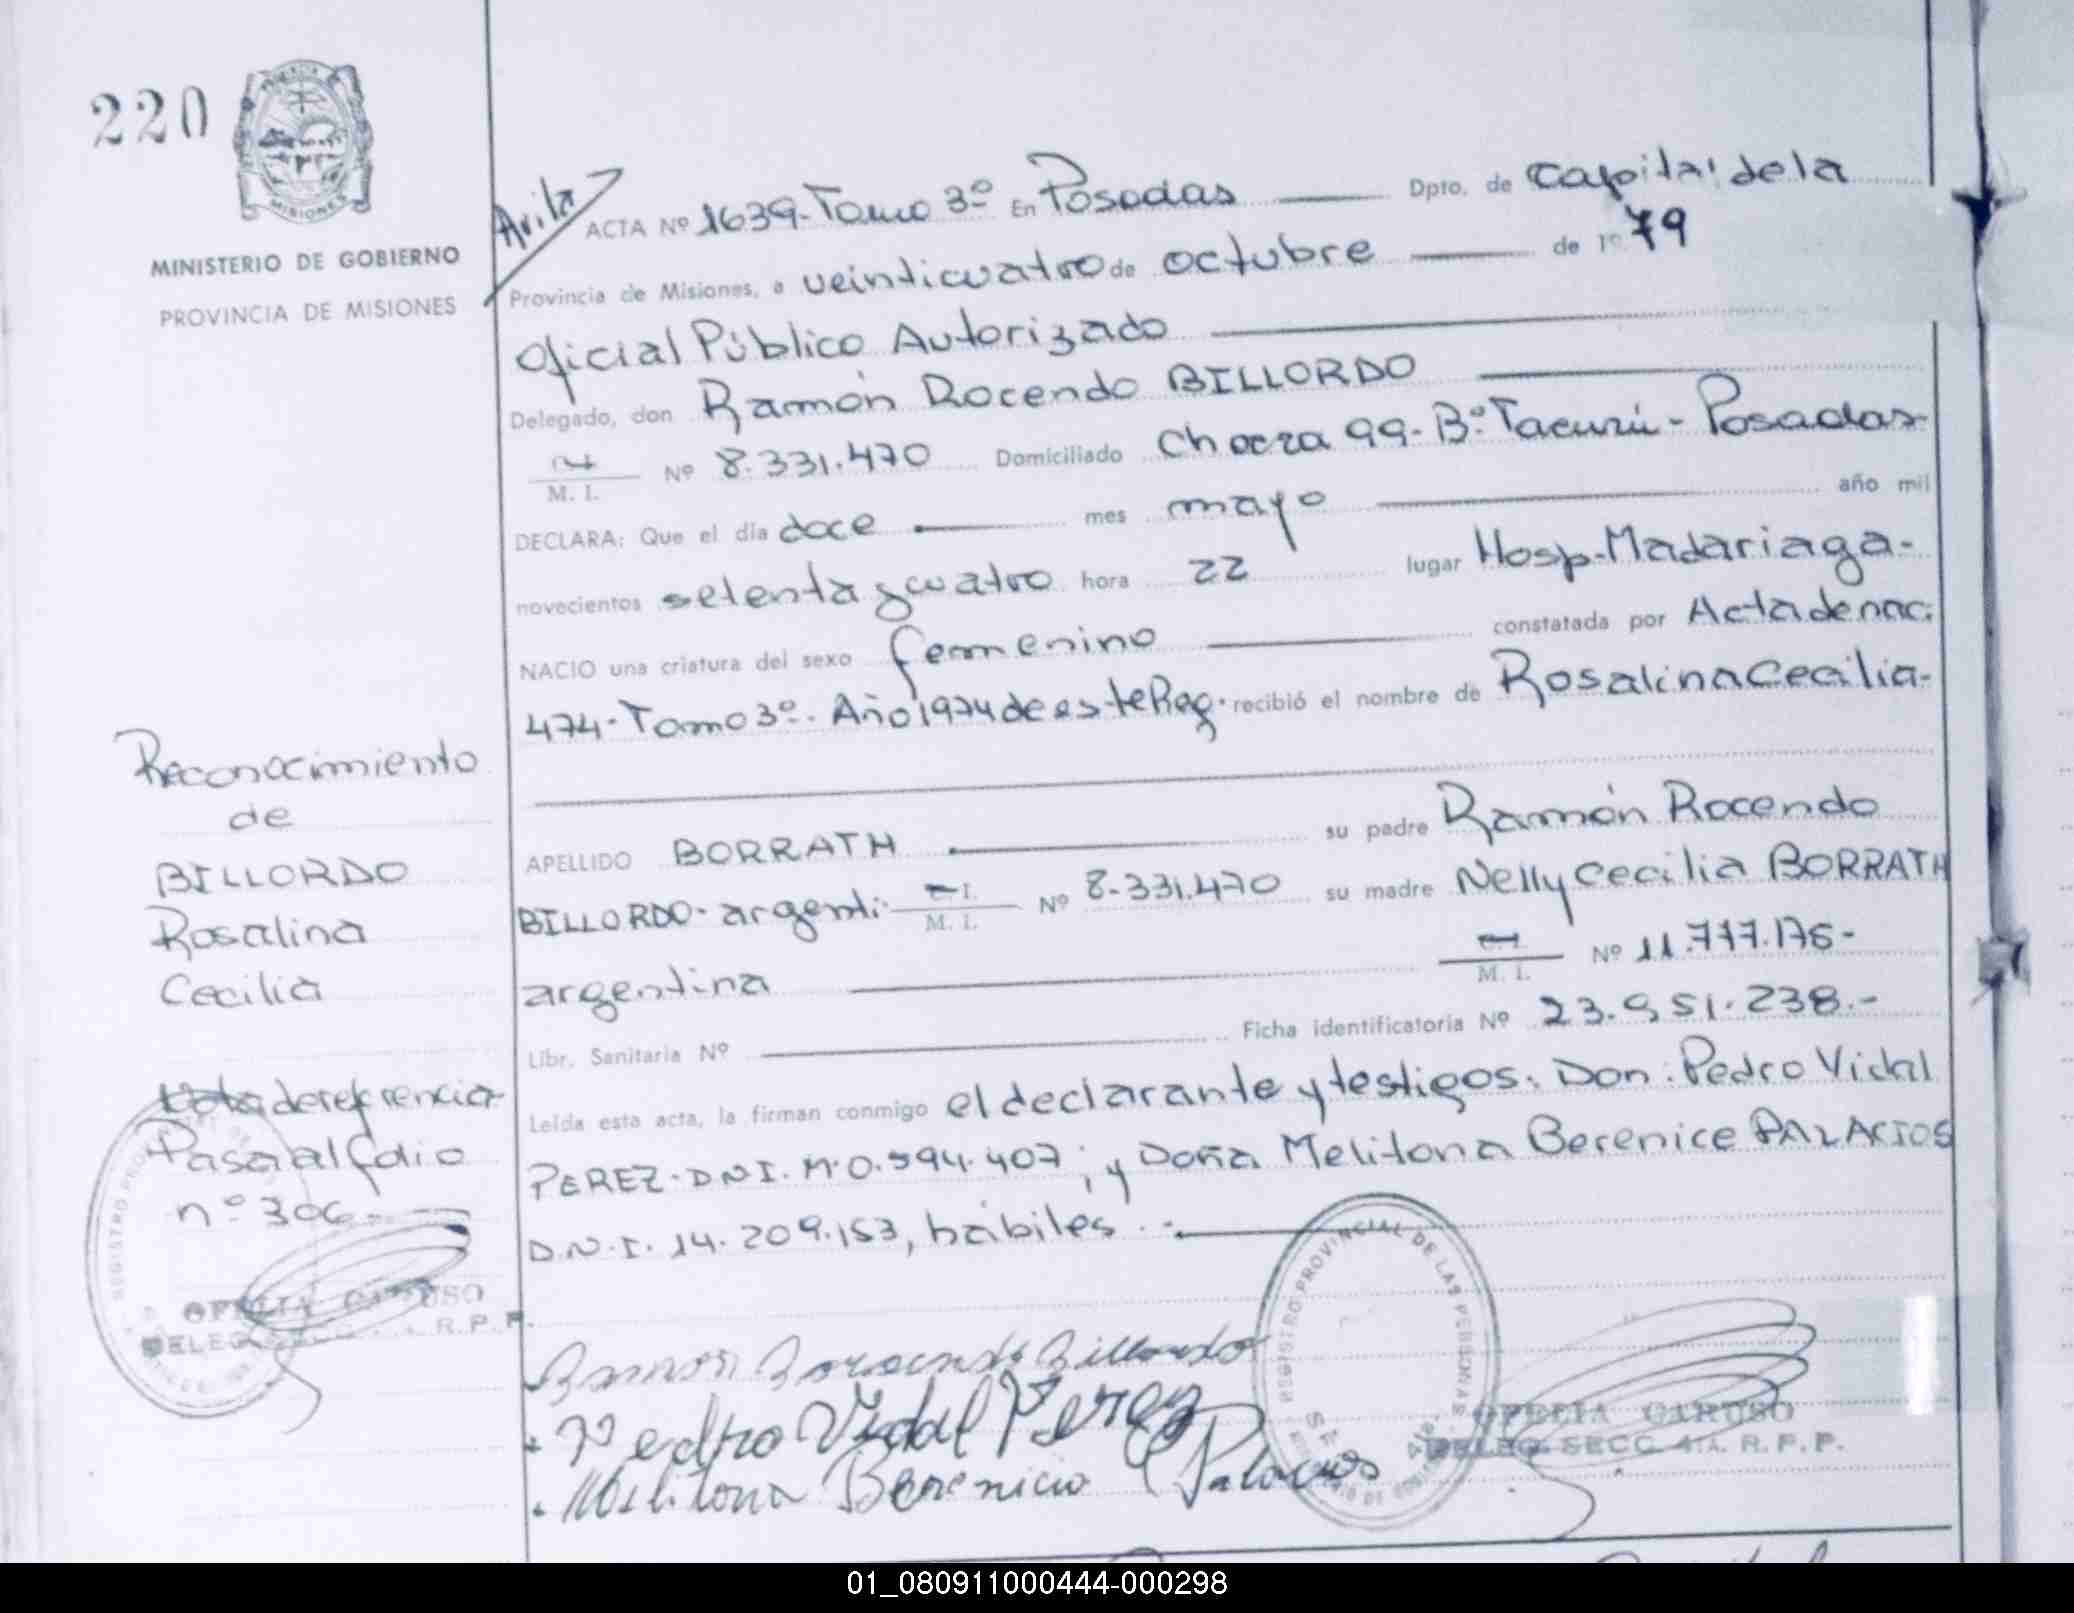 220
MISIONES
MINISTERIO DE GOBIERNO
PROVINCIA DE MISIONES
ACTA Nº 1639-Tomo 3º En Posadas Dpto. de Capital de la
Provincia de Misiones, a veinticuatro de octubre de 19 79
Oficial Público Autorizado
Delegado, don Ramón Rocendo BILLORDO
M. I. Nº 8.331.470 Domiciliado Chacra 99-Bº Tacurú-Posadas-
DECLARA: Que el día doce mes mayo año mil
novecientos setenta y cuatro hora 22 lugar Hosp-Madariaga-
NACIO una criatura del sexo femenino constatada por Acta de nac.
474-Tomo 3º. Año 1974 de este Reg. recibió el nombre de Rosalina Cecilia-
APELLIDO BORRATH su padre Ramón Rocendo
BILLORDO-argenti- M. I. Nº 8-331.470 su madre Nelly Cecilia BORRATH
argentina M. I. Nº 11.777.176-
Libr. Sanitaria Nº Ficha identificatoria Nº 23.951.238.-
Leída esta acta, la firman conmigo el declarante y testigos: Don: Pedro Vidal
PEREZ-DNI. M.0.594.407; y Doña Melitona Berenice PALACIOS
D.N.I. 14.209.153, hábiles.-
Reconocimiento
de
BILLORDO
Rosalina
Cecilia
de referencia
Pasa al folio
nº 306-
OFELIA CARUSO
DELEG R.P.P.
Ramón Rocendo Billordo
Pedro Vidal Perez
Melitona Berenicia Palacios
REGISTRO PROVINCIAL DE LAS PERSONAS
OFELIA CARUSO
DELEG. SECC. 4ta. R.P.P.
01_080911000444-000298